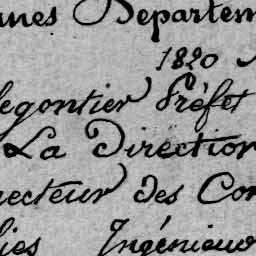 nnes Departem
1820
legontier Préfet
La Direction
recteur des Con
lies Ingénieur